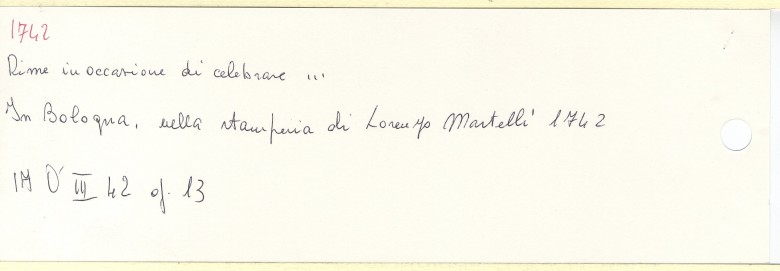 1742
Rime in occasione di celebrare ...
In Bologna, nella stamperia di Lorenzo Martelli 1742
17 O III 42 op. 13